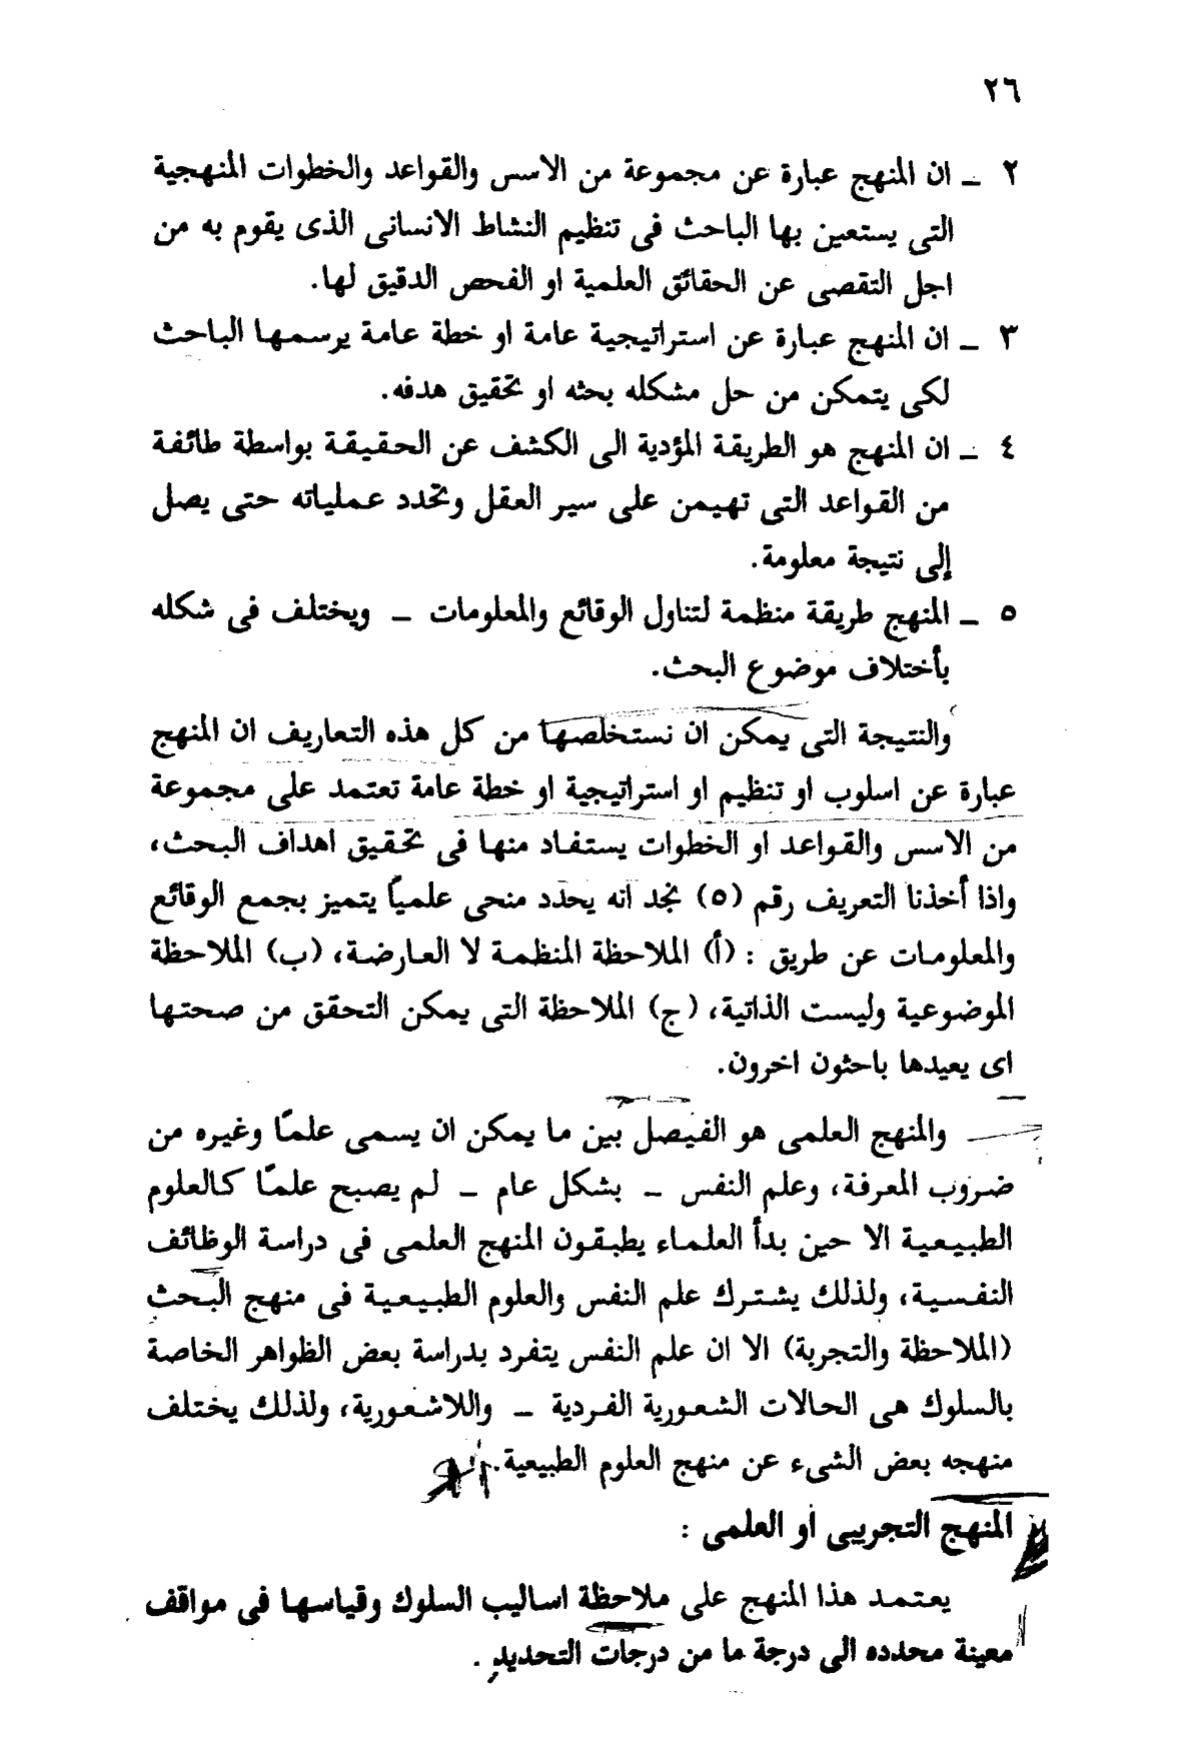 ٢٦
٢ ـ ان المنهج عبارة عن مجموعة من الاسس والقواعد والخطوات المنهجية
التى يستعين بها الباحث فى تنظيم النشاط الانسانى الذى يقوم به من
اجل التقصى عن الحقائق العلمية او الفحص الدقيق لها.
٣ ـ ان المنهج عبارة عن استراتيجية عامة او خطة عامة يرسمها الباحث
لكى يتمكن من حل مشكله بحثه او تحقيق هدفه.
٤ ـ ان المنهج هو الطريقة المؤدية الى الكشف عن الحقيقة بواسطة طائفة
من القواعد التى تهيمن على سير العقل وتحدد عملياته حتى يصل
إلى نتيجة معلومة.
٥ ـ المنهج طريقة منظمة لتناول الوقائع والمعلومات ـ ويختلف فى شكله
بأختلاف موضوع البحث.
والنتيجة التى يمكن ان نستخلصها من كل هذه التعاريف ان المنهج
عبارة عن اسلوب او تنظيم او استراتيجية او خطة عامة تعتمد على مجموعة
من الاسس والقواعد او الخطوات يستفاد منها فى تحقيق اهداف البحث،
واذا أخذنا التعريف رقم (٥) نجد انه يحدد منحى علمياً يتميز بجمع الوقائع
والمعلومات عن طريق : (أ) الملاحظة المنظمة لا العارضة، (ب) الملاحظة
الموضوعية وليست الذاتية، (ج) الملاحظة التى يمكن التحقق من صحتها
اى يعيدها باحثون اخرون.
والمنهج العلمى هو الفيصل بين ما يمكن ان يسمى علمًا وغيره من
ضروب المعرفة، وعلم النفس ـ بشكل عام ـ لم يصبح علمًا كالعلوم
الطبيعية الا حين بدأ العلماء يطبقون المنهج العلمى فى دراسة الوظائف
النفسية، ولذلك يشترك علم النفس والعلوم الطبيعية فى منهج البحث
(الملاحظة والتجربة) الا ان علم النفس يتفرد بدراسة بعض الظواهر الخاصة
بالسلوك هى الحالات الشعورية الفردية ـ واللاشعورية، ولذلك يختلف
منهجه بعض الشىء عن منهج العلوم الطبيعية.
المنهج التجريبى او العلمى :
يعتمد هذا المنهج على ملاحظة اساليب السلوك وقياسها فى مواقف
معينة محدده الى درجة ما من درجات التحديد.